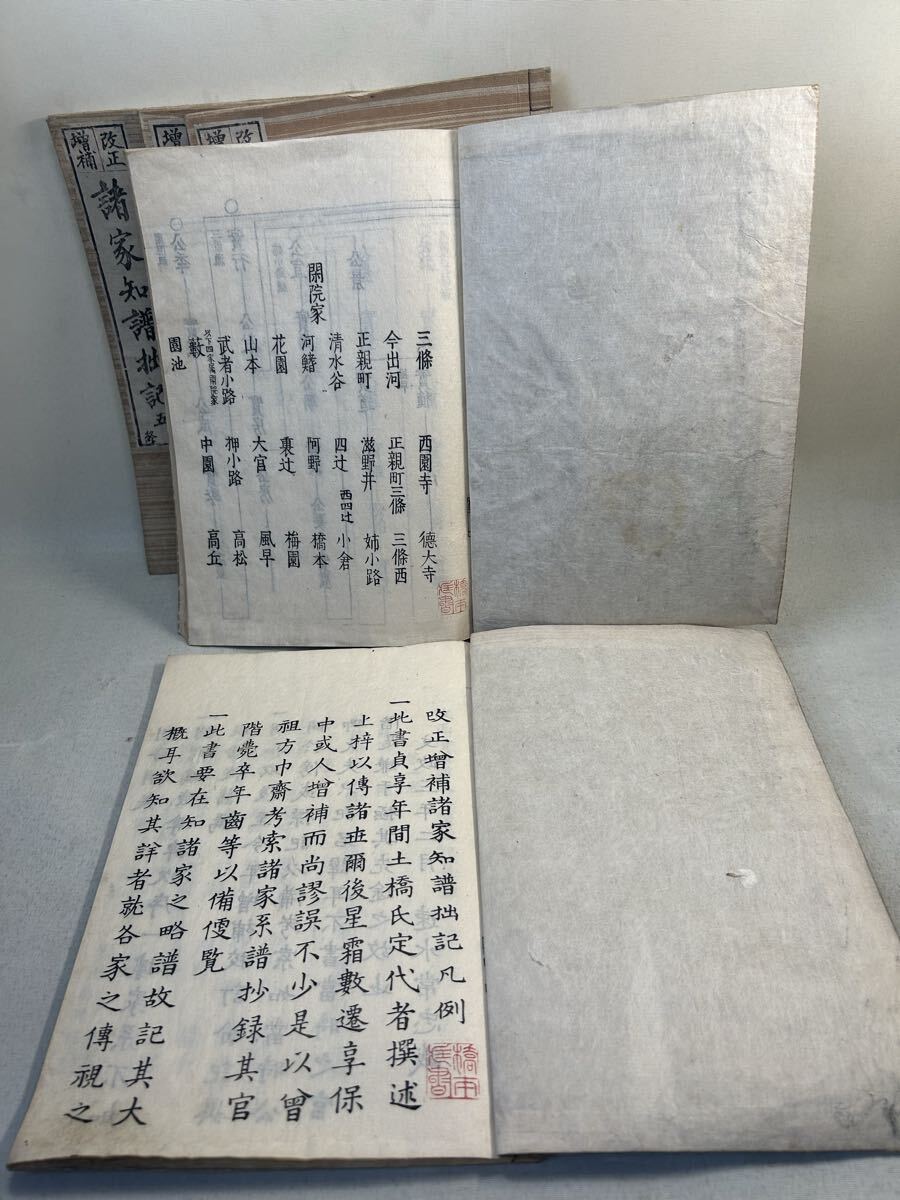 改正
増補
諸家知譜拙記 五
増
増
改
閑院家
三條 西園寺 德大寺
今出河 正親町三條 三條西
正親町 滋野井 姉小路
清水谷 四辻 西四辻 小倉
河鰭 阿野 橋本
花園 裏辻 梅園
山本 大宮 風早
武者小路 押小路 高松
以下四家准閑院家
藪 中園 高丘
園池
改正增補諸家知譜拙記凡例
一此書貞享年間土橋氏定代者撰述
上梓以傳諸世爾後星霜數遷享保
中或人增補而尚謬誤不少是以曾
祖方巾齋考索諸家系譜抄録其官
階薨卒年齒等以備便覧
一此書要在知諸家之略譜故記其大
概耳欲知其詳者就各家之傳視之